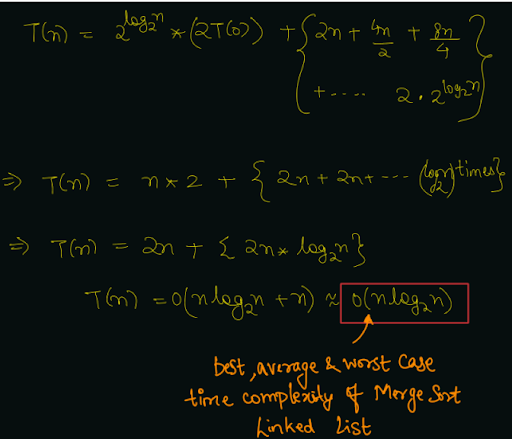 T(n) = 2^log₂n * (2T(0)) + { 2n + 4n/2 + 8n/4
+ .... 2 . 2^log₂n }
⇒ T(n) = n * 2 + { 2n + 2n + ... (log₂n) times }
⇒ T(n) = 2n + { 2n * log₂n }
T(n) = O(n log₂n + n) ≈ O(n log₂n)
best, average & worst case
time complexity of Merge Sort
Linked List